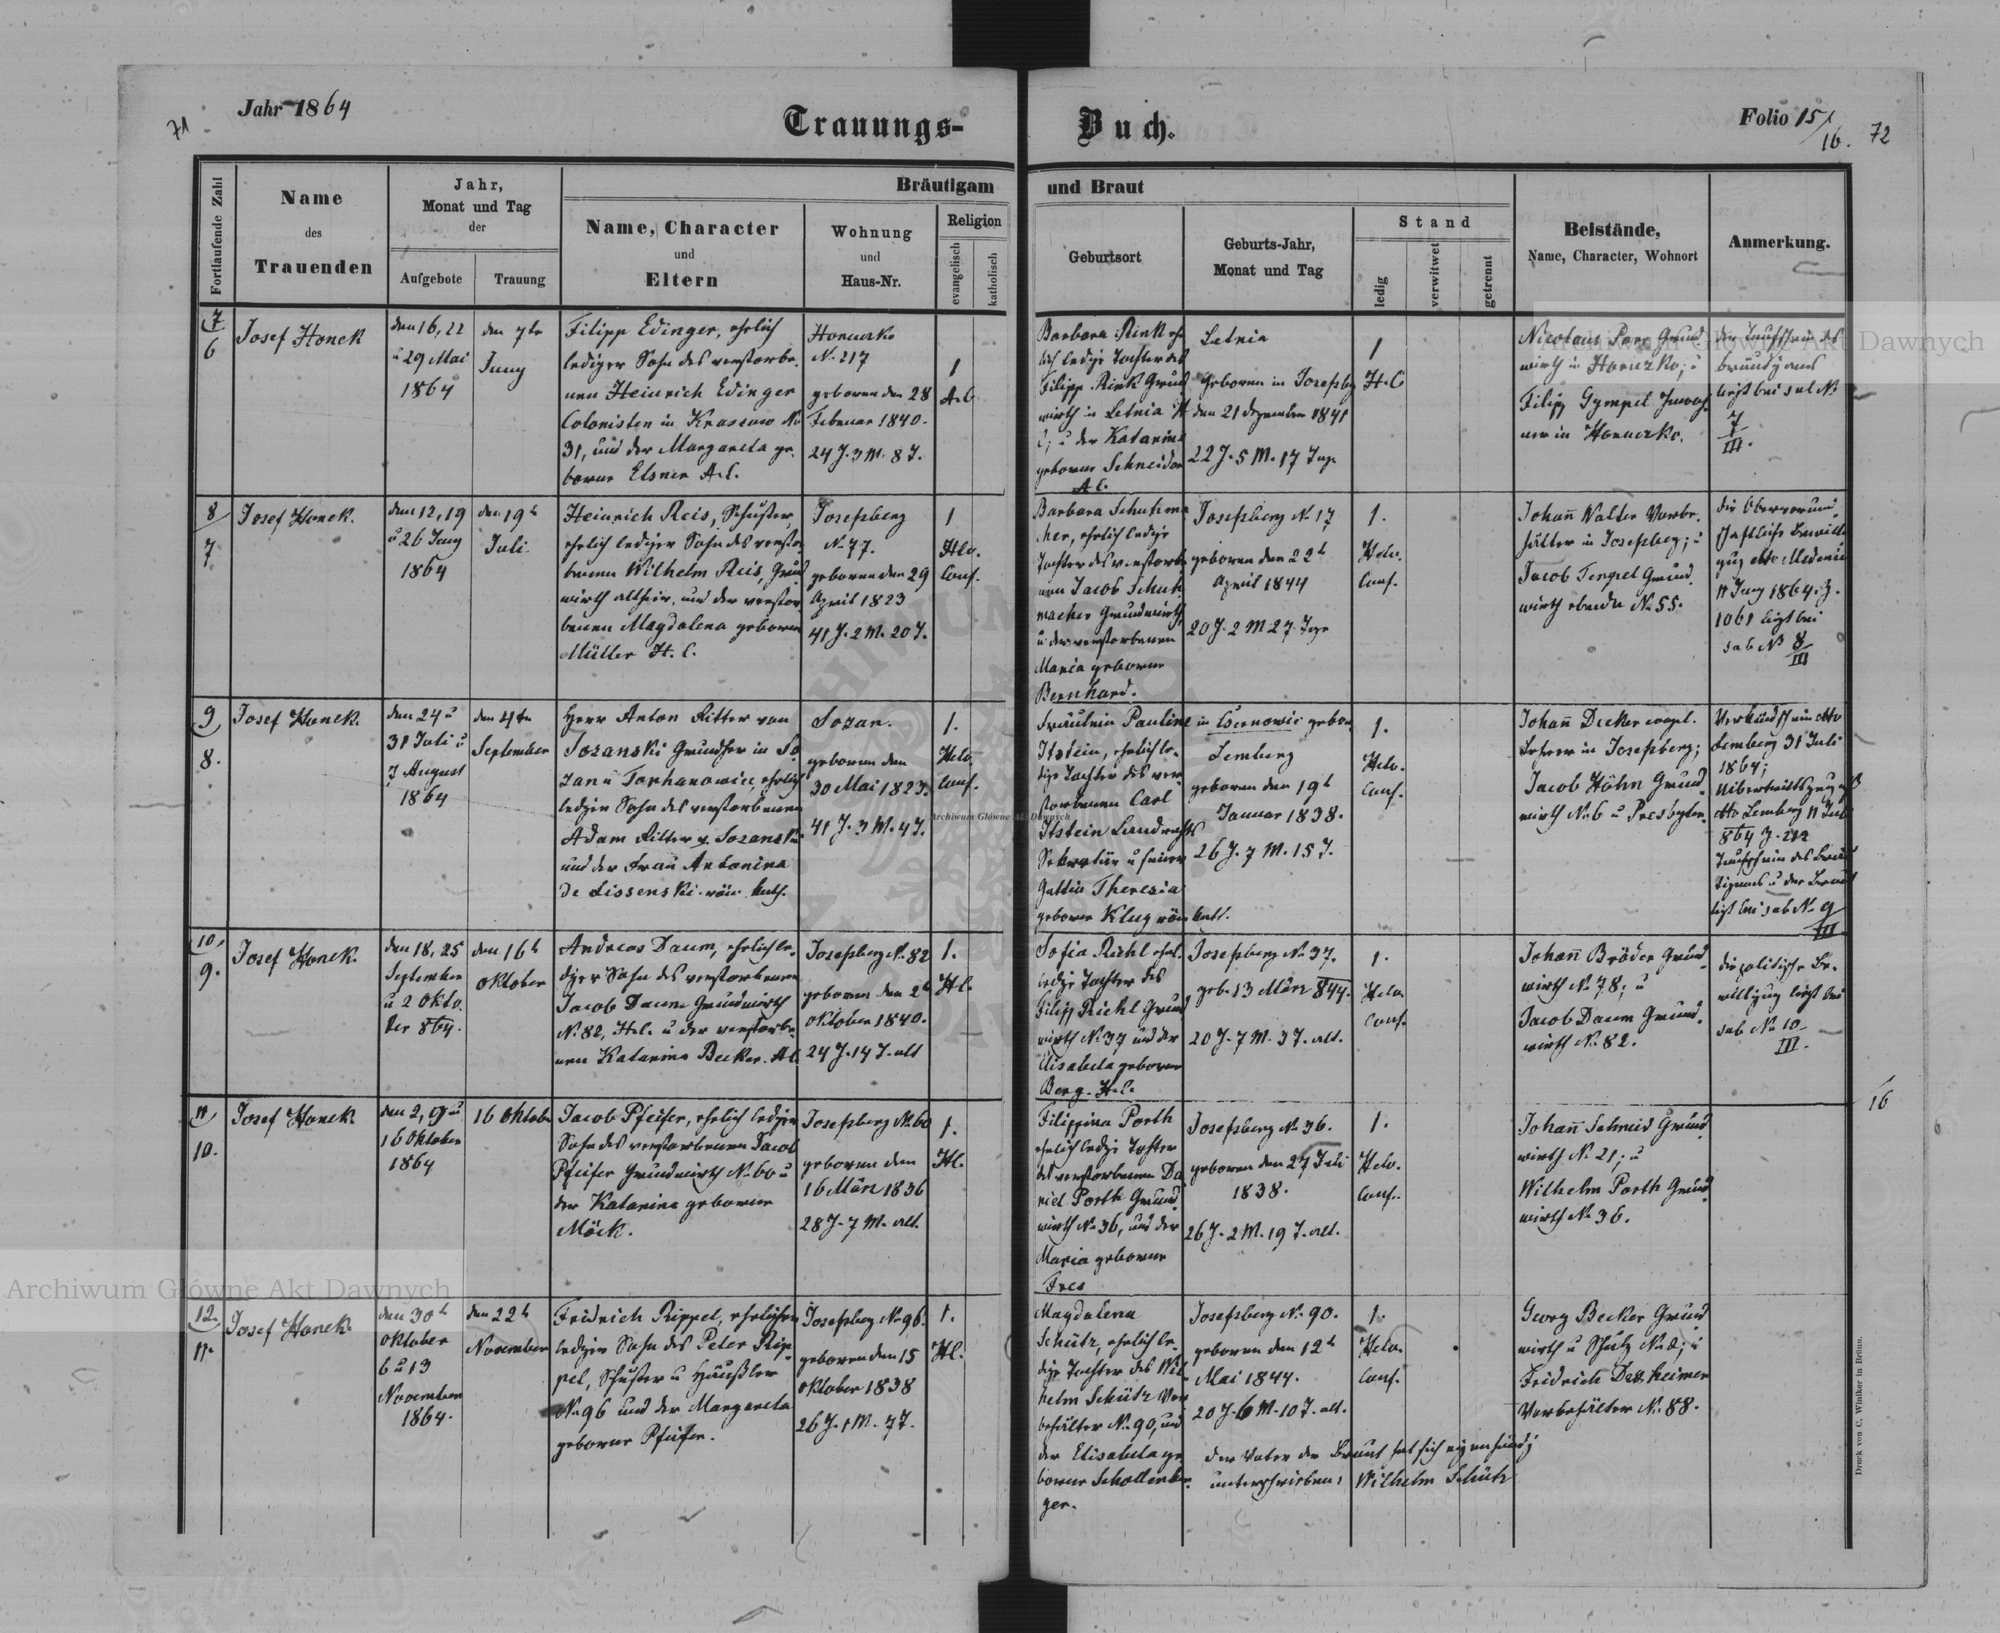 71
Jahr 1864
Trauungs-
Buch.
Folio 15/
16.
72
Fortlaufende Zahl
Name
des
Trauenden
Jahr,
Monat und Tag
der
Aufgebote
Trauung
Bräutigam
und Braut
Name, Character
und
Eltern
Wohnung
und
Haus-Nr.
Religion
evangelisch
katholisch
Geburtsort
Geburts-Jahr,
Monat und Tag
Stand
ledig
verwitwet
getrennt
Beistände,
Name, Character, Wohnort
Anmerkung.
7
6
Josef Honek
den 16, 22
u 29 Mai
1864
den 7te
Juny
Filipp Edinger, ehrlich
lediger Sohn des verstorbe-
nen Heinrich Edinger
Colonisten in Krassow No
31, und der Margareta ge-
borne Elsner A.C.
Horuczko
N. 217
geboren den 28
Februar 1840.
24 J. 3 M. 8 T.
1
A.C
Barbara Rink eh-
lich ledige Tochter des
Filipp Rink Grund
wirth in Letnia H
C, u der Katarina
geborne Schneider
A.C.
Letnia
geboren in Josefsbg
den 21 Dezember 1841
22 J. 5 M. 17 Tage
1
H.C
Nicolaus Parr Grund
wirth in Horuczko; u
Filipp Gympel Inwoh-
ner in Horuczko.
der Taufschein des
Bräutigams
liegt bei sub No
7
III.
8
7.
Josef Honek.
den 12, 19
u 26 Juny
1864
den 19t
Juli.
Heinrich Reis, Schuster,
ehrlich lediger Sohn des verstor-
benen Wilhelm Reis, Grund
wirth allhier, und der verstor-
benen Magdalena geborne
Müller H.C.
Josefsberg
No 77.
geboren den 29
April 1823
41 J. 2 M. 20 T.
1
Hlv.
Conf.
Barbara Schuhma
cher, ehrlich ledige
Tochter des verstorbe
nen Jacob Schuh
macher Grundwirth,
u der verstorbenen
Maria geborne
Bernhard.
Josefsberg No 17
geboren den 22t
April 1844
20 J. 2 M 27 Tage
1.
Helv.
Conf.
Johañ Walter Vorbe-
hälter in Josefsberg; u
Jacob Tempel Grund
wirth ebenda No 55.
die Obervormund-
schaftliche Bewilli
gung dtto Medenic
11 Juny 1864. Z.
1061 liegt bei
sub No 8
III
9
8.
Josef Honek.
den 24 u
31 Juli u
7 August
1864
den 4te
September
Herr Anton Ritter von
Sozanski Grundherr in So
zan u Torhanowice, ehrlich
lediger Sohn des verstorbenen
Adam Ritter v. Sozanski
und der Frau Antonina
de Lissenski röm. kath.
Sozan.
geboren den
30 Mai 1823.
41 J. 3 M. 4 T.
1.
Helv.
Conf.
Fräulein Pauline
Itstein, ehrlich le-
dige Tochter des ver
storbenen Carl
Itstein Landrechts
Sekretär u seiner
Gattin Theresia
geborne Klug röm kath.
in Csernowic gebor.
Lemberg
geboren den 19t
Januar 1838.
26 J. 7 M. 15 T.
1.
Helv.
Conf.
Johañ Decker evagl.
Lehrer in Josefsberg;
Jacob Höhn Grund
wirth No 6 u Presbyter.
Verkündschein dtto
Lemberg 31 Juli
1864;
dtto Lemberg 11 Juli
864 Z. 212
Taufschein des Bräu
tigams u der Braut
liegt bei sub No 9
III
10
9.
Josef Honek.
den 18, 25
September
u 2 Okto
ber 864.
den 16t
Oktober
Andreas Daum, ehrlich le-
diger Sohn des verstorbenen
Jacob Daum Grundwirth
No 82, H.C. u der verstorbe-
nen Katarina Becker. A.C
Josefsberg No 82
geboren den 2t
Oktober 1840.
24 J. 14 T. alt
1.
Hl.
Sofia Riehl ehrl.
ledige Tochter des
Filipp Riehl Grund
wirth No 37 und der
Elisabeta geborne
Berg. H.C.
Josefsberg No 37.
geb. 13 März 844.
20 J. 7 M. 3 T. alt.
1.
Helv.
Conf.
Johañ Bräder Grund
wirth No 78, u
Jacob Daum Grund-
wirth No 82.
die politische Be-
willigung liegt bei
sub No 10
III.
16
11
10.
Josef Honek.
den 2, 9 u
16 Oktober
1864
16 Oktober
Jacob Pfeifer, ehrlich lediger
Sohn des verstorbenen Jacob
Pfeifer Grundwirth No 60 u
der Katarina geborne
Möck.
Josefsberg No 60
geboren den
16 März 1836
28 J. 7 M. alt.
1.
Hl.
Filippina Porth
ehrlich ledige Tochter
des verstorbenen Da
niel Porth Grund
wirth No 36, und der
Maria geborne
Fres
Josefsberg No 36.
geboren den 27 Juli
1838.
26 J. 2 M. 19 T. alt.
1.
Helv.
Conf.
Johañ Schmid Grund
wirth No 21; u
Wilhelm Porth Grund
wirth No 36.
12
11.
Josef Honek.
den 30t
Oktober
6 u 13
November
1864.
den 22t
November
Fridrich Rippel, ehrlicher
lediger Sohn des Peter Rip-
pel, Schuster u Häußler
No 96 und der Margareta
geborne Pfeifer.
Josefsberg No 96.
geboren den 15
Oktober 1838
26 J. 1 M. 7 T.
1.
Hl.
Magdalena
Schütz, ehrlich le-
dige Tochter des Wil
helm Schütz Vor
behälter No 90, und
der Elisabeta ge
borne Schollenber
ger.
Josefsberg No 90.
geboren den 12t
Mai 1844.
20 J. 6 M. 10 T. alt.
1.
Helv.
Conf.
der Vater der Braut hat sich eigenhändig
unterschrieben: Wilhelm Schütz
Georg Becker Grund
wirth u Schulz No 2; u
Fridrich Desheimer
Vorbehälter No 88.
Druck von C. Winiker in Brünn.
Archiwum Główne Akt Dawnych
Archiwum Główne Akt Dawnych
Archiwum Główne Akt Dawnych